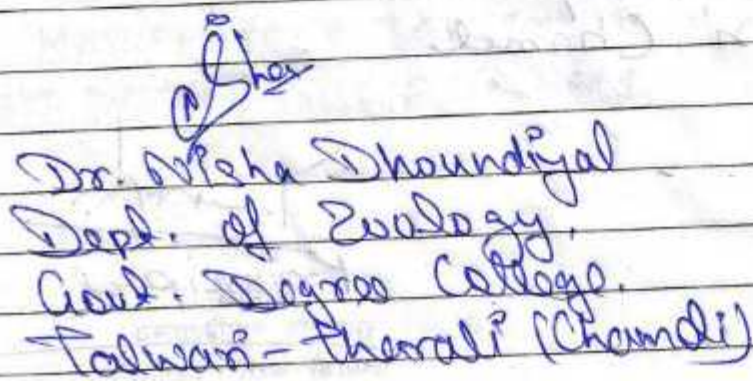 Dr. Nisha Dhoundiyal
Dept. of Zoology,
Govt. Degree College.
Talwari - Tharali (Chamoli)